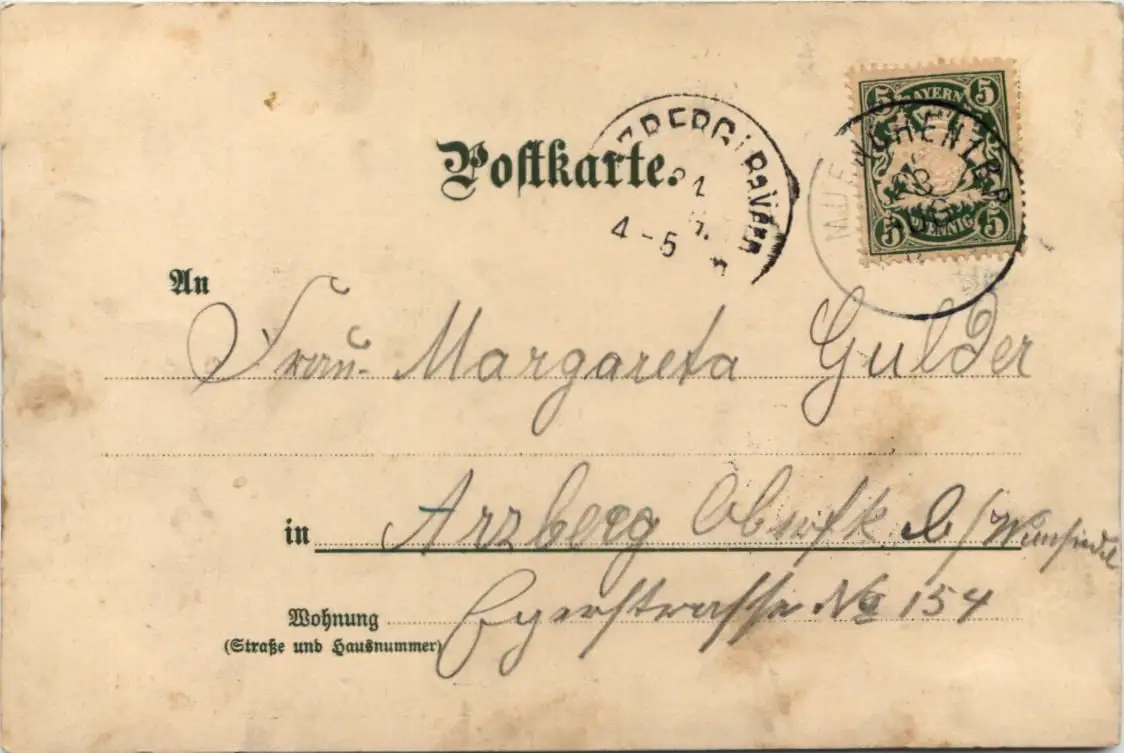 5 5
BAYERN
5 5
PFENNIG
MUENCHENZBR
ZBERG BAYERN
4-5
Postkarte.
An
Frau Margareta Gulder
in Arzberg b/Wunsiedel
Wohnung Egerstrasse No 154
(Straße und Hausnummer)